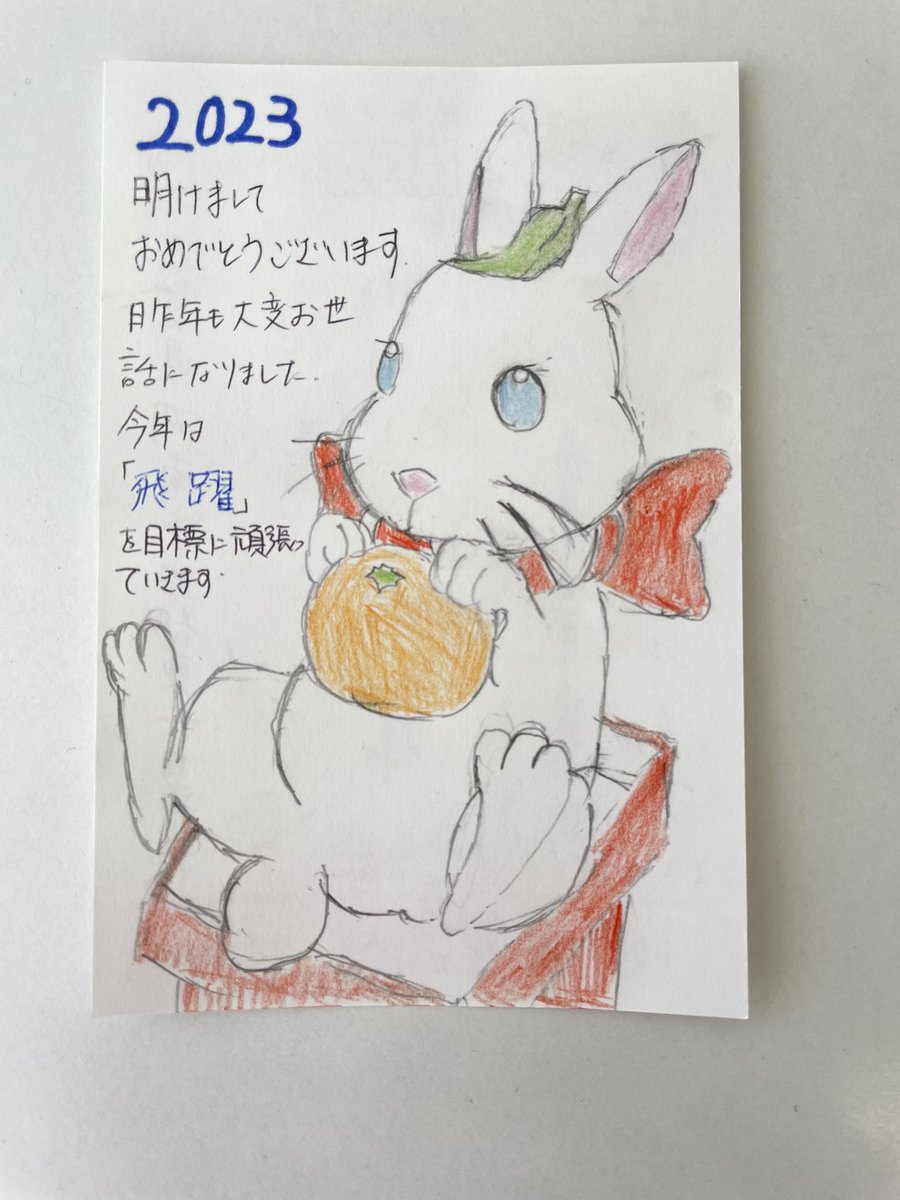 2023
明けまして
おめでとうございます.
昨年も大変お世
話になりました.
今年は
「飛躍」
を目標に頑張っ
ていきます.